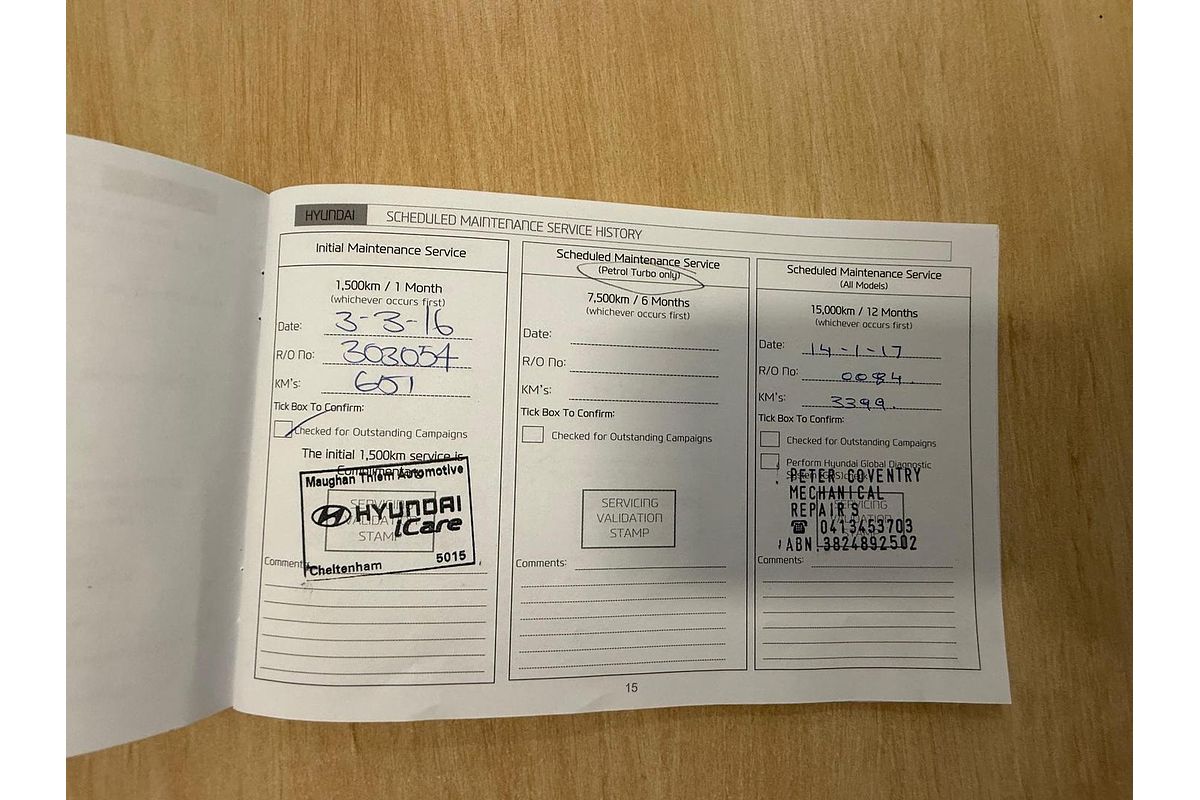 HYUNDAI SCHEDULED MAINTENANCE SERVICE HISTORY
Initial Maintenance Service
1,500km / 1 Month
(whichever occurs first)
Date: 3-3-16
R/O No: 303054
KM's: 651
Tick Box To Confirm:
Checked for Outstanding Campaigns
The initial 1,500km service is
Complimentary
Maughan Thiem Automotive
HYUNDAI
iCare
Cheltenham 5015
SERVICING
VALIDATION
STAMP
Comments:
Scheduled Maintenance Service
(Petrol Turbo only)
7,500km / 6 Months
(whichever occurs first)
Date:
R/O No:
KM's:
Tick Box To Confirm:
Checked for Outstanding Campaigns
SERVICING
VALIDATION
STAMP
Comments:
Scheduled Maintenance Service
(All Models)
15,000km / 12 Months
(whichever occurs first)
Date: 14-1-17
R/O No: 0084
KM's: 3399.
Tick Box To Confirm:
Checked for Outstanding Campaigns
Perform Hyundai Global Diagnostic
System (GDS) check
PETER COVENTRY
MECHANICAL
REPAIRS
☎ 0413453703
ABN.3824892502
SERVICING
VALIDATION
STAMP
Comments:
15